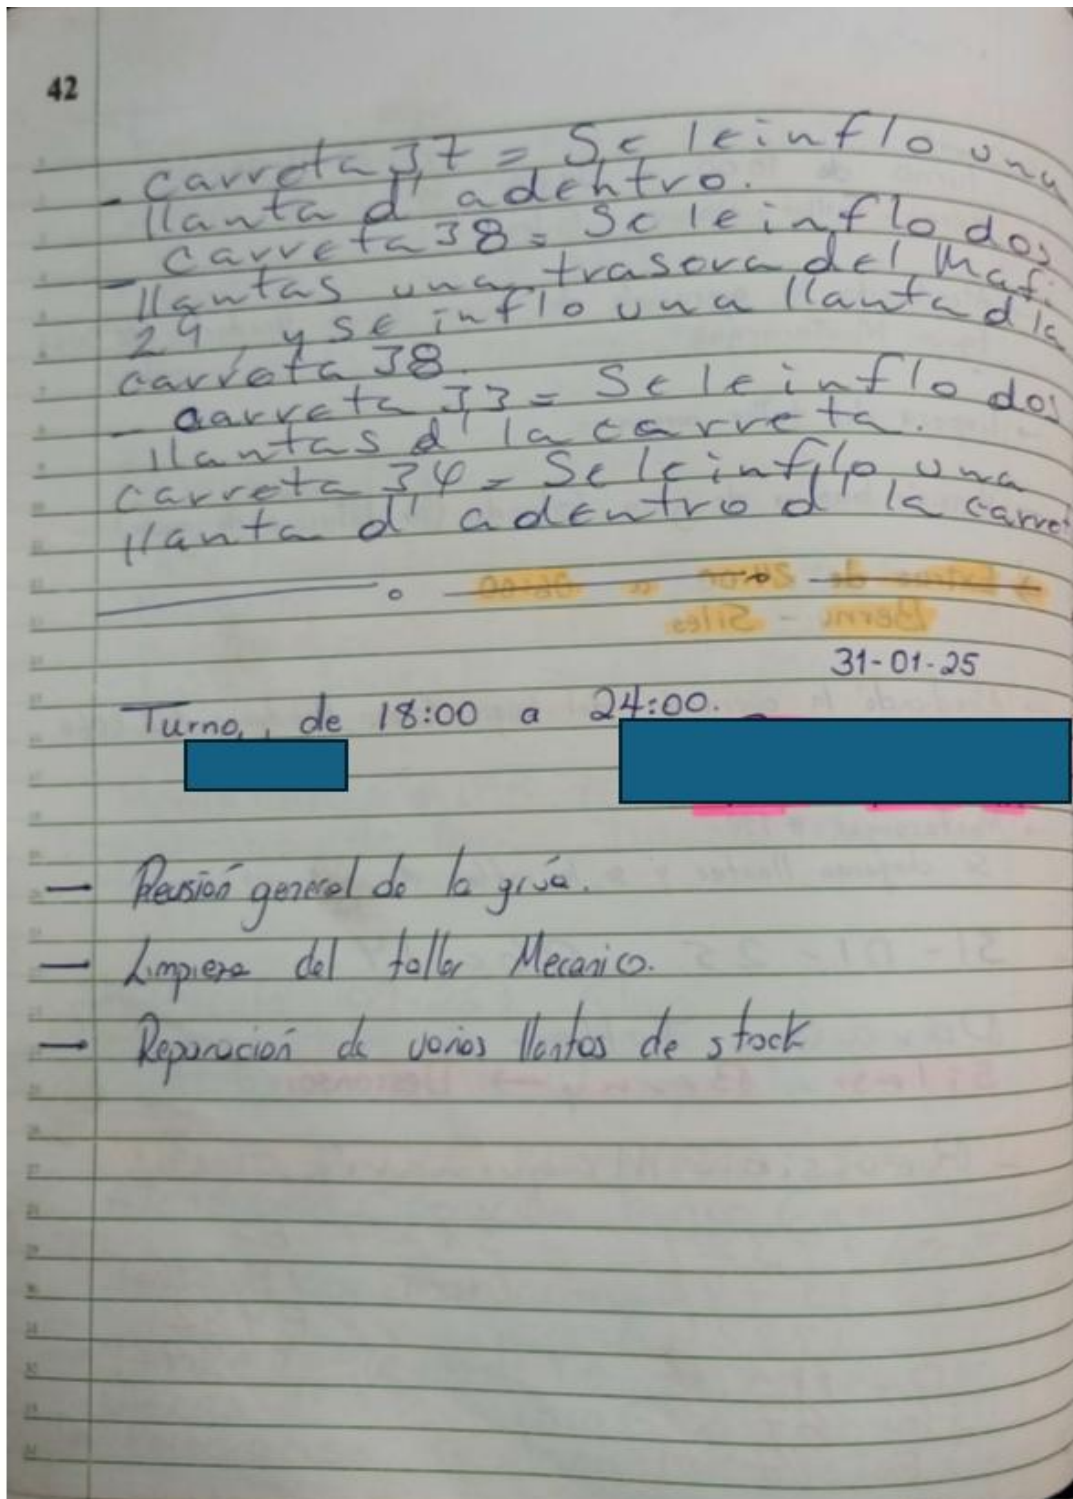 42
- carreta 37 = Se le inflo una
llanta d' adentro.
- carreta 38 = Se le inflo dos
llantas una trasera del Maf.
29, y se inflo una llanta d la
carreta 38.
- carreta 33 = Se le inflo dos
llantas d' la carreta.
carreta 34 = Se le inflo una
llanta d' adentro d' la carret
→ Extras de 24:00 a 06:00
Berni - Siles
31-01-25
Turno, de 18:00 a 24:00.
— Revisión general de la grúa.
— Limpieza del taller Mecanico.
— Reparación de varios llantas de stock